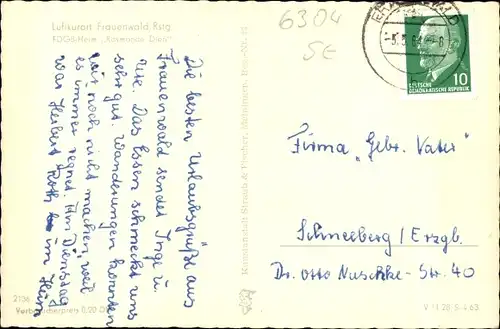 Luftkurort Frauenwald Rstg
FDGB-Heim „Kosmonaut
6304
SE
10
DEUTSCHE
DEMOKRATISCHE REPUBLIK
Die besten Urlaubsgrüße aus
Frauenwald sendet Inge u.
Ute. Das Essen schmeckt uns
sehr gut. Wanderungen konnten
wir noch nicht machen, weil
es immer regnet. Am Dienstag
war Herbert Roth im Heim
Kunstanstalt Straub & Fischer, Meiningen,
Firma „Gebr. Vater"
Schneeberg / Erzgb.
Dr. Otto Nuschke-Str. 40
2136
Verbraucherpreis 0,20
V 11 28, S 4 63